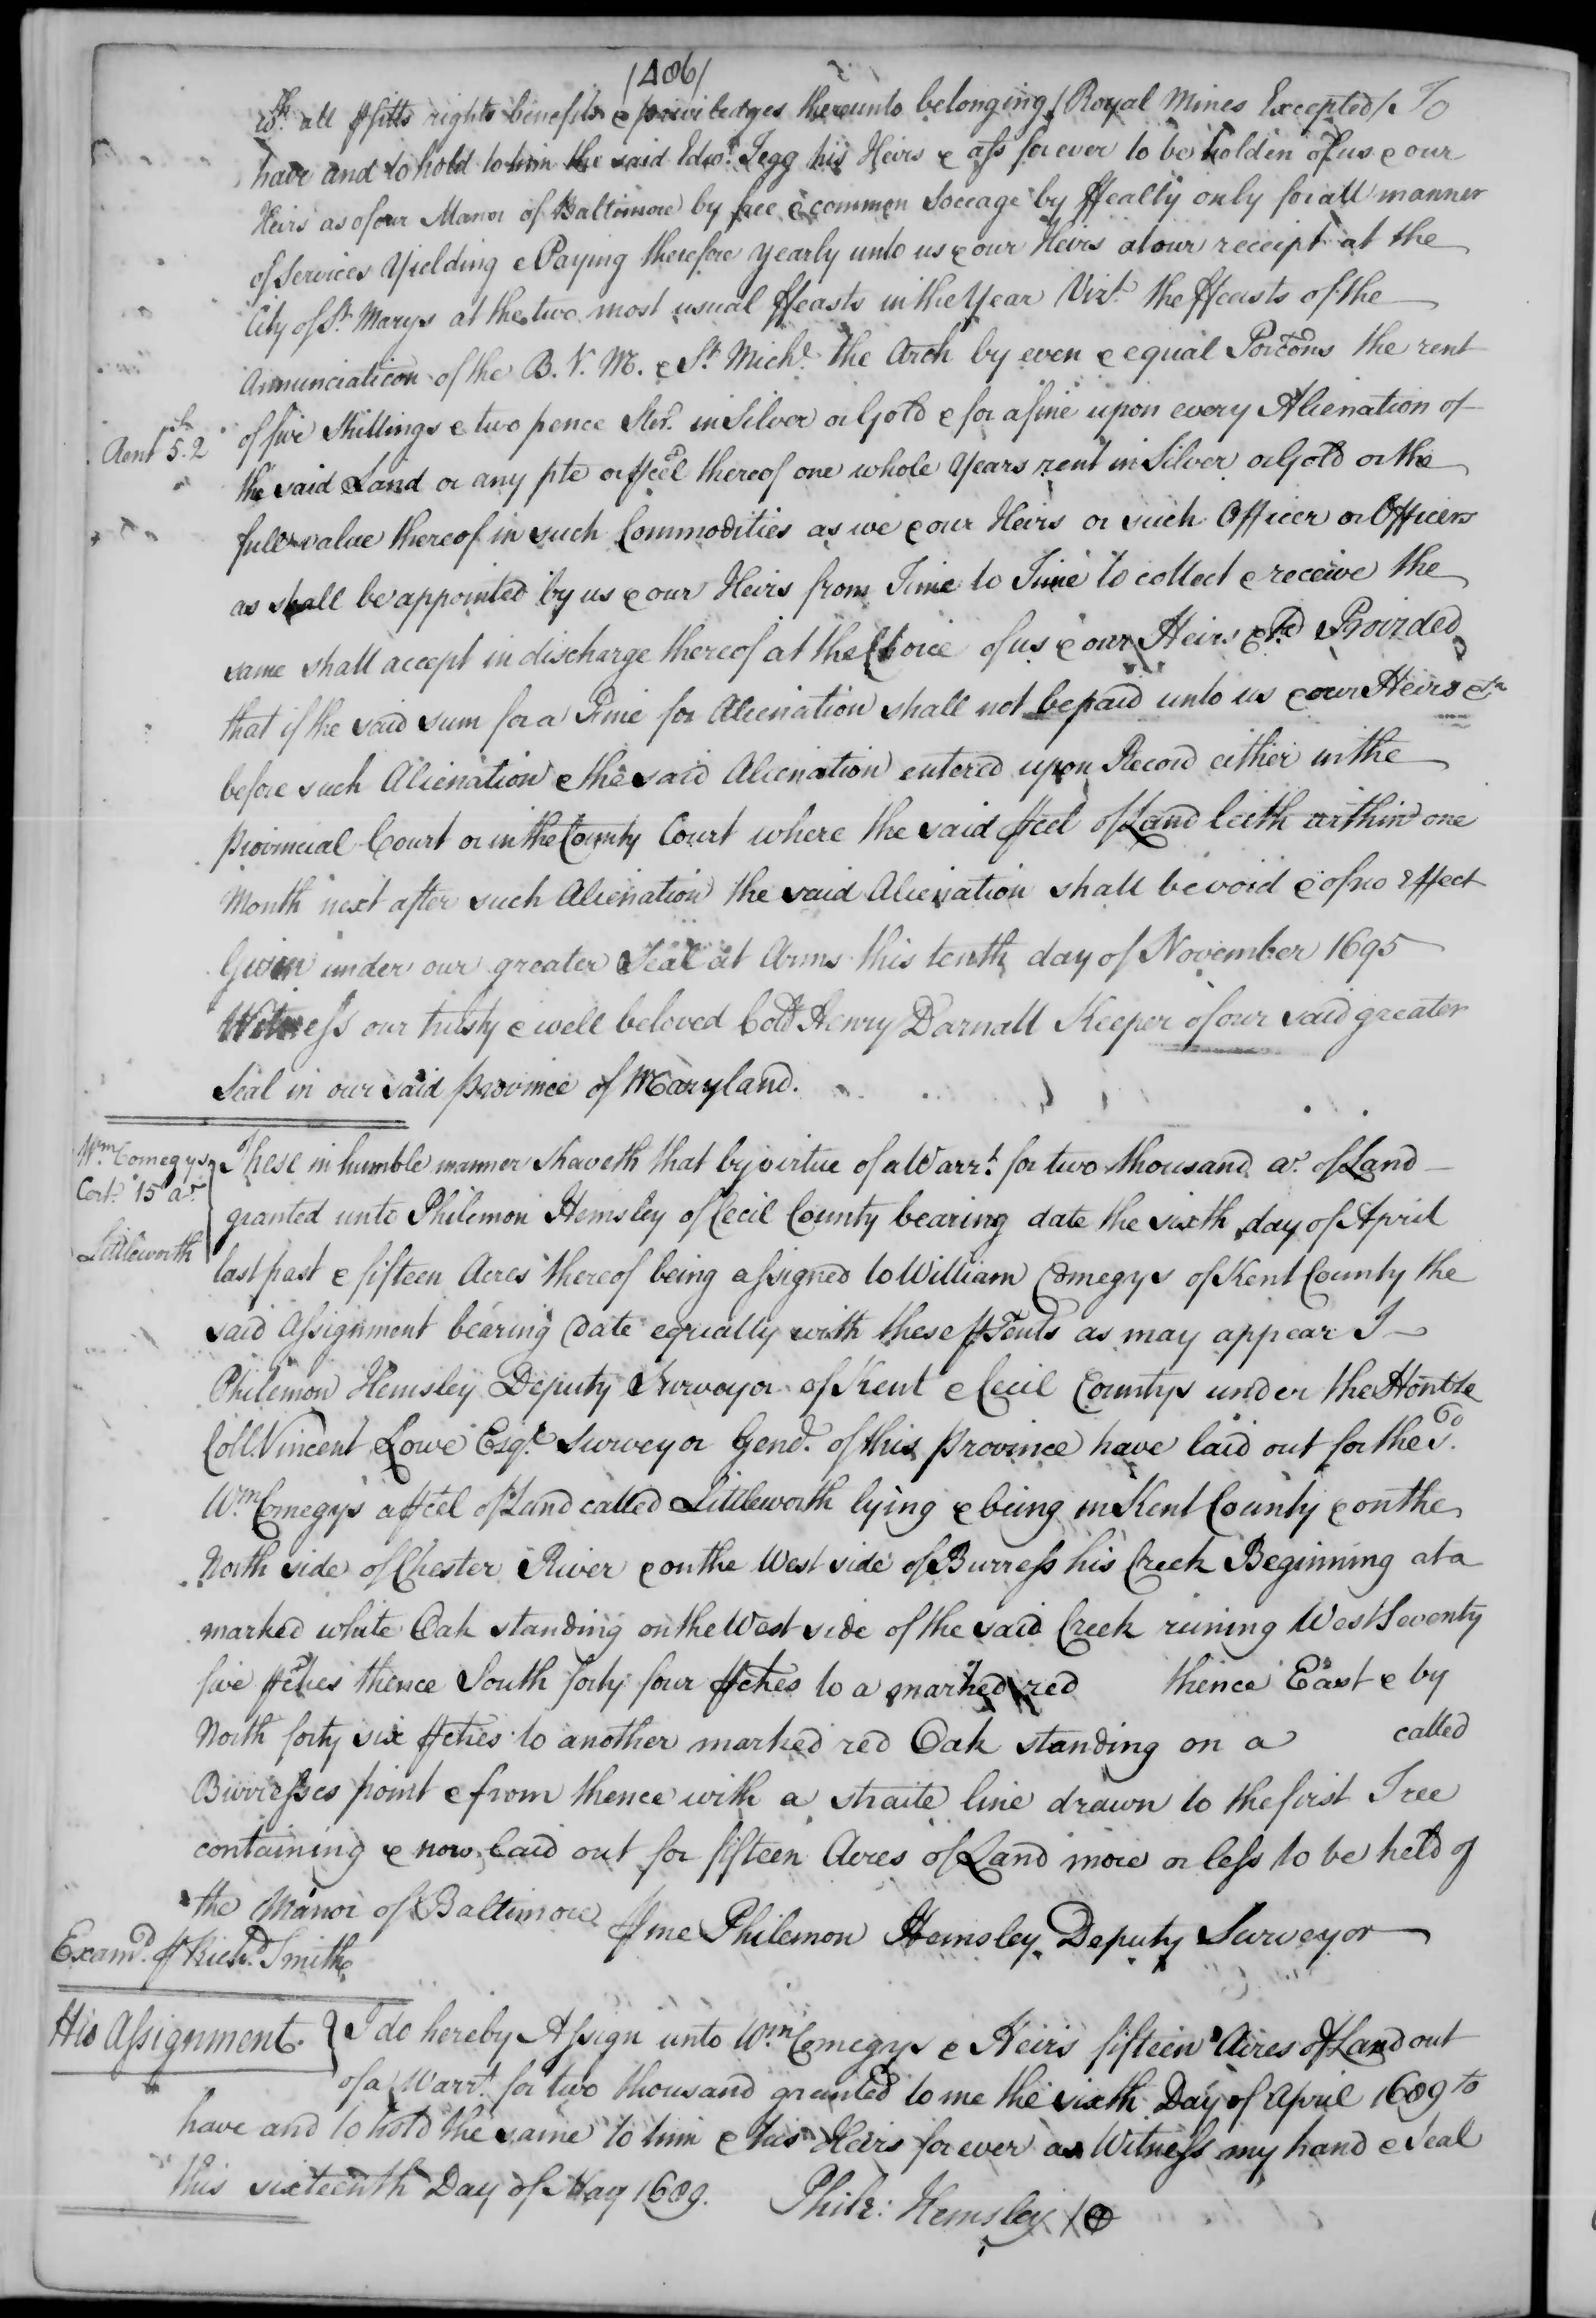 /486/
wth. all pfitts rights benefits & priviledges thereunto belonging / Royal Mines Excepted / To
have and to hold to him the said Edwd. Jegg his Heirs & ass for ever to be holden of us & our
Heirs as of our Manor of Baltimore by free & common Soccage by ffealty only for all manner
of Services Yielding & Paying therefore yearly unto us & our Heirs at our receipt at the
City of St. Marys at the two most usual ffeasts in the Year Vizt. the ffeasts of the
Annunciation of the B. V. M. & St. Michl. the Arch by even & equal Porcons the rent
Rent 5s.2
of five Shillings & two pence Ster. in Silver or Gold & for a fine upon every Alienation of
the said Land or any pte or pcel thereof one whole Years rent in Silver or Gold or the
full value thereof in such Commodities as we & our Heirs or such Officer or Officers
as shall be appointed by us & our Heirs from Time to Time to collect & receive the
same shall accept in discharge thereof at the Choice of us & our Heirs Provided
that if the said sum for a Fine for Alienation shall not be paid unto us & our Heirs &ca
before such Alienation & the said Alienation entered upon Record either in the
Provincial Court or in the County Court where the said pcel of Land lieth within one
Month next after such Alienation the said Alienation shall be void & of no Effect
Given under our greater Seal at Arms this tenth day of November 1695
Witness our trusty & well beloved Coll. Henry Darnall Keeper of our said greater
Seal in our said province of Maryland.
Wm. Comegys
Cert. 15 ar.
Littleworth
These in humble manner sheweth that by virtue of a Warrt. for two thousand ar. of Land
granted unto Philemon Hemsley of Cecil County bearing date the sixth day of April
last past & fifteen Acres thereof being assigned to William Comegys of Kent County the
said Assignment bearing date equally with these psents as may appear I
Philemon Hemsley Deputy Surveyor of Kent & Cecil Countys under the Honble
Coll. Vincent Lowe Esqr. Surveyor Genl. of this Province have laid out for the sd.
Wm. Comegys a pcel of Land called Littleworth lying & being in Kent County & on the
North side of Chester River & on the West side of Burress his Creek Beginning at a
marked white Oak standing on the West side of the said Creek runing West Seventy
five pches thence South forty four pches to a marked red thence East & by
North forty six pches to another marked red Oak standing on a called
Burresses point & from thence with a straite line drawn to the first Tree
containing & now laid out for fifteen Acres of Land more or less to be held of
the Manor of Baltimore
p me Philemon Hemsley Deputy Surveyor
Examd. p Richd. Smith
His Assignment.
I do hereby Assign unto Wm. Comegys & Heirs fifteen Acres of Land out
of a Warrt. for two thousand granted to me the sixth Day of April 1689 to
have and to hold the same to him & his Heirs for ever as Witness my hand & Seal
this sixteenth Day of May 1689.
Phile: Hemsley